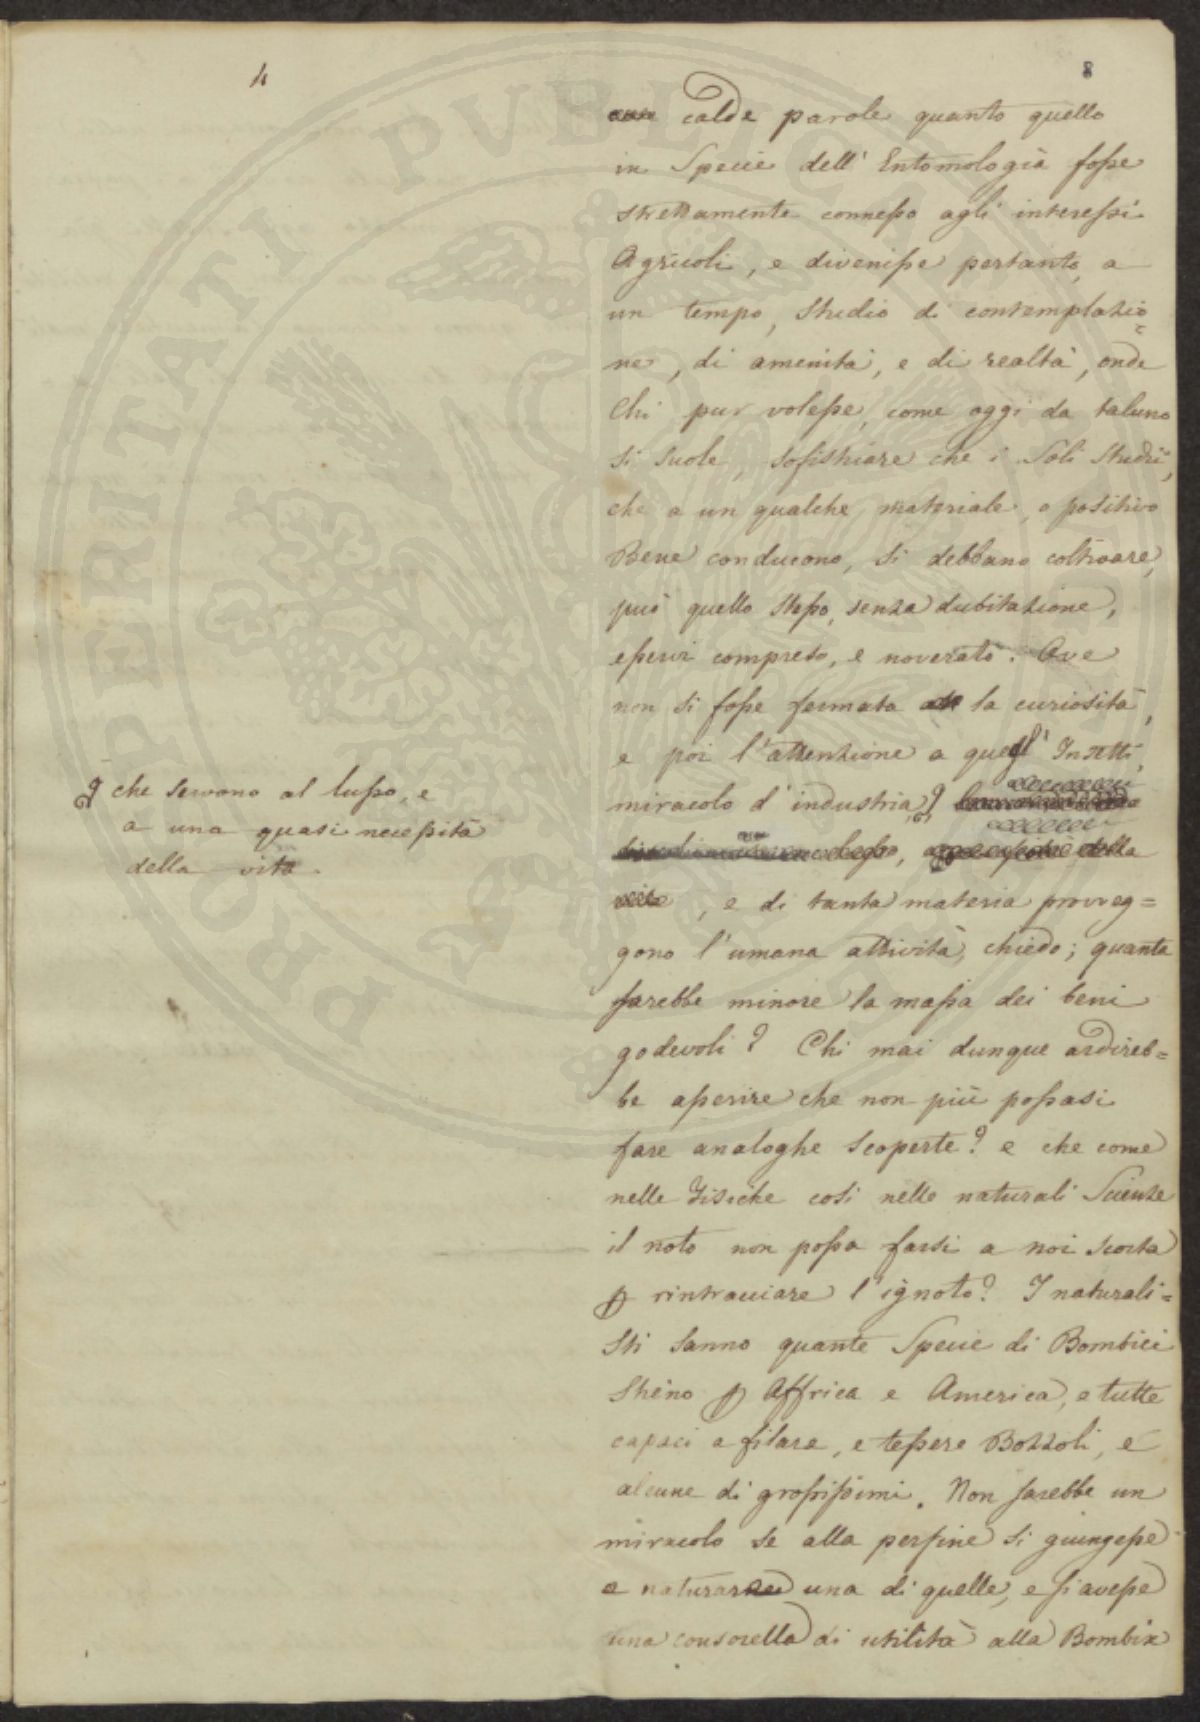 4
8
calde parole quanto quello
in Specie dell' Entomologia fosse
strettamente connesso agli interessi
Agricoli, e divenisse pertanto, a
un tempo, studio di contemplazio=
ne, di amenità, e di realtà, onde
Chi pur volesse, come oggi da taluno
si suole, sofisticare che i Soli Studii,
che a un qualche materiale, o positivo
Bene conducono, si debbano coltivare,
può quello stesso, senza dubitazione,
esservi compreso, e noverato. Ove
non si fosse fermata la curiosità,
e poi l'attenzione a quegl' Insetti,
miracolo d'industria,
che servono al lusso, e
a una quasi necessità
della vita
, e di tanta materia provveg=
gono l'umana attività, chiedo; quanta
sarebbe minore la massa dei beni
godevoli? Chi mai dunque ardireb=
be asserire che non più possasi
fare analoghe scoperte? e che come
nelle Fisiche così nelle naturali Scienze
il noto non possa farsi a noi scorta
p rintracciare l'ignoto? I naturali=
sti sanno quante Specie di Bombici
Stieno p Affrica e America, e tutte
capaci a filare, e tessere Bozzoli, e
alcune di grossissimi. Non sarebbe un
miracolo se alla perfine si giungesse
a naturar una di quelle, e si avesse
una consorella di utilità alla Bombix
PROPERITATI PVBLICAE